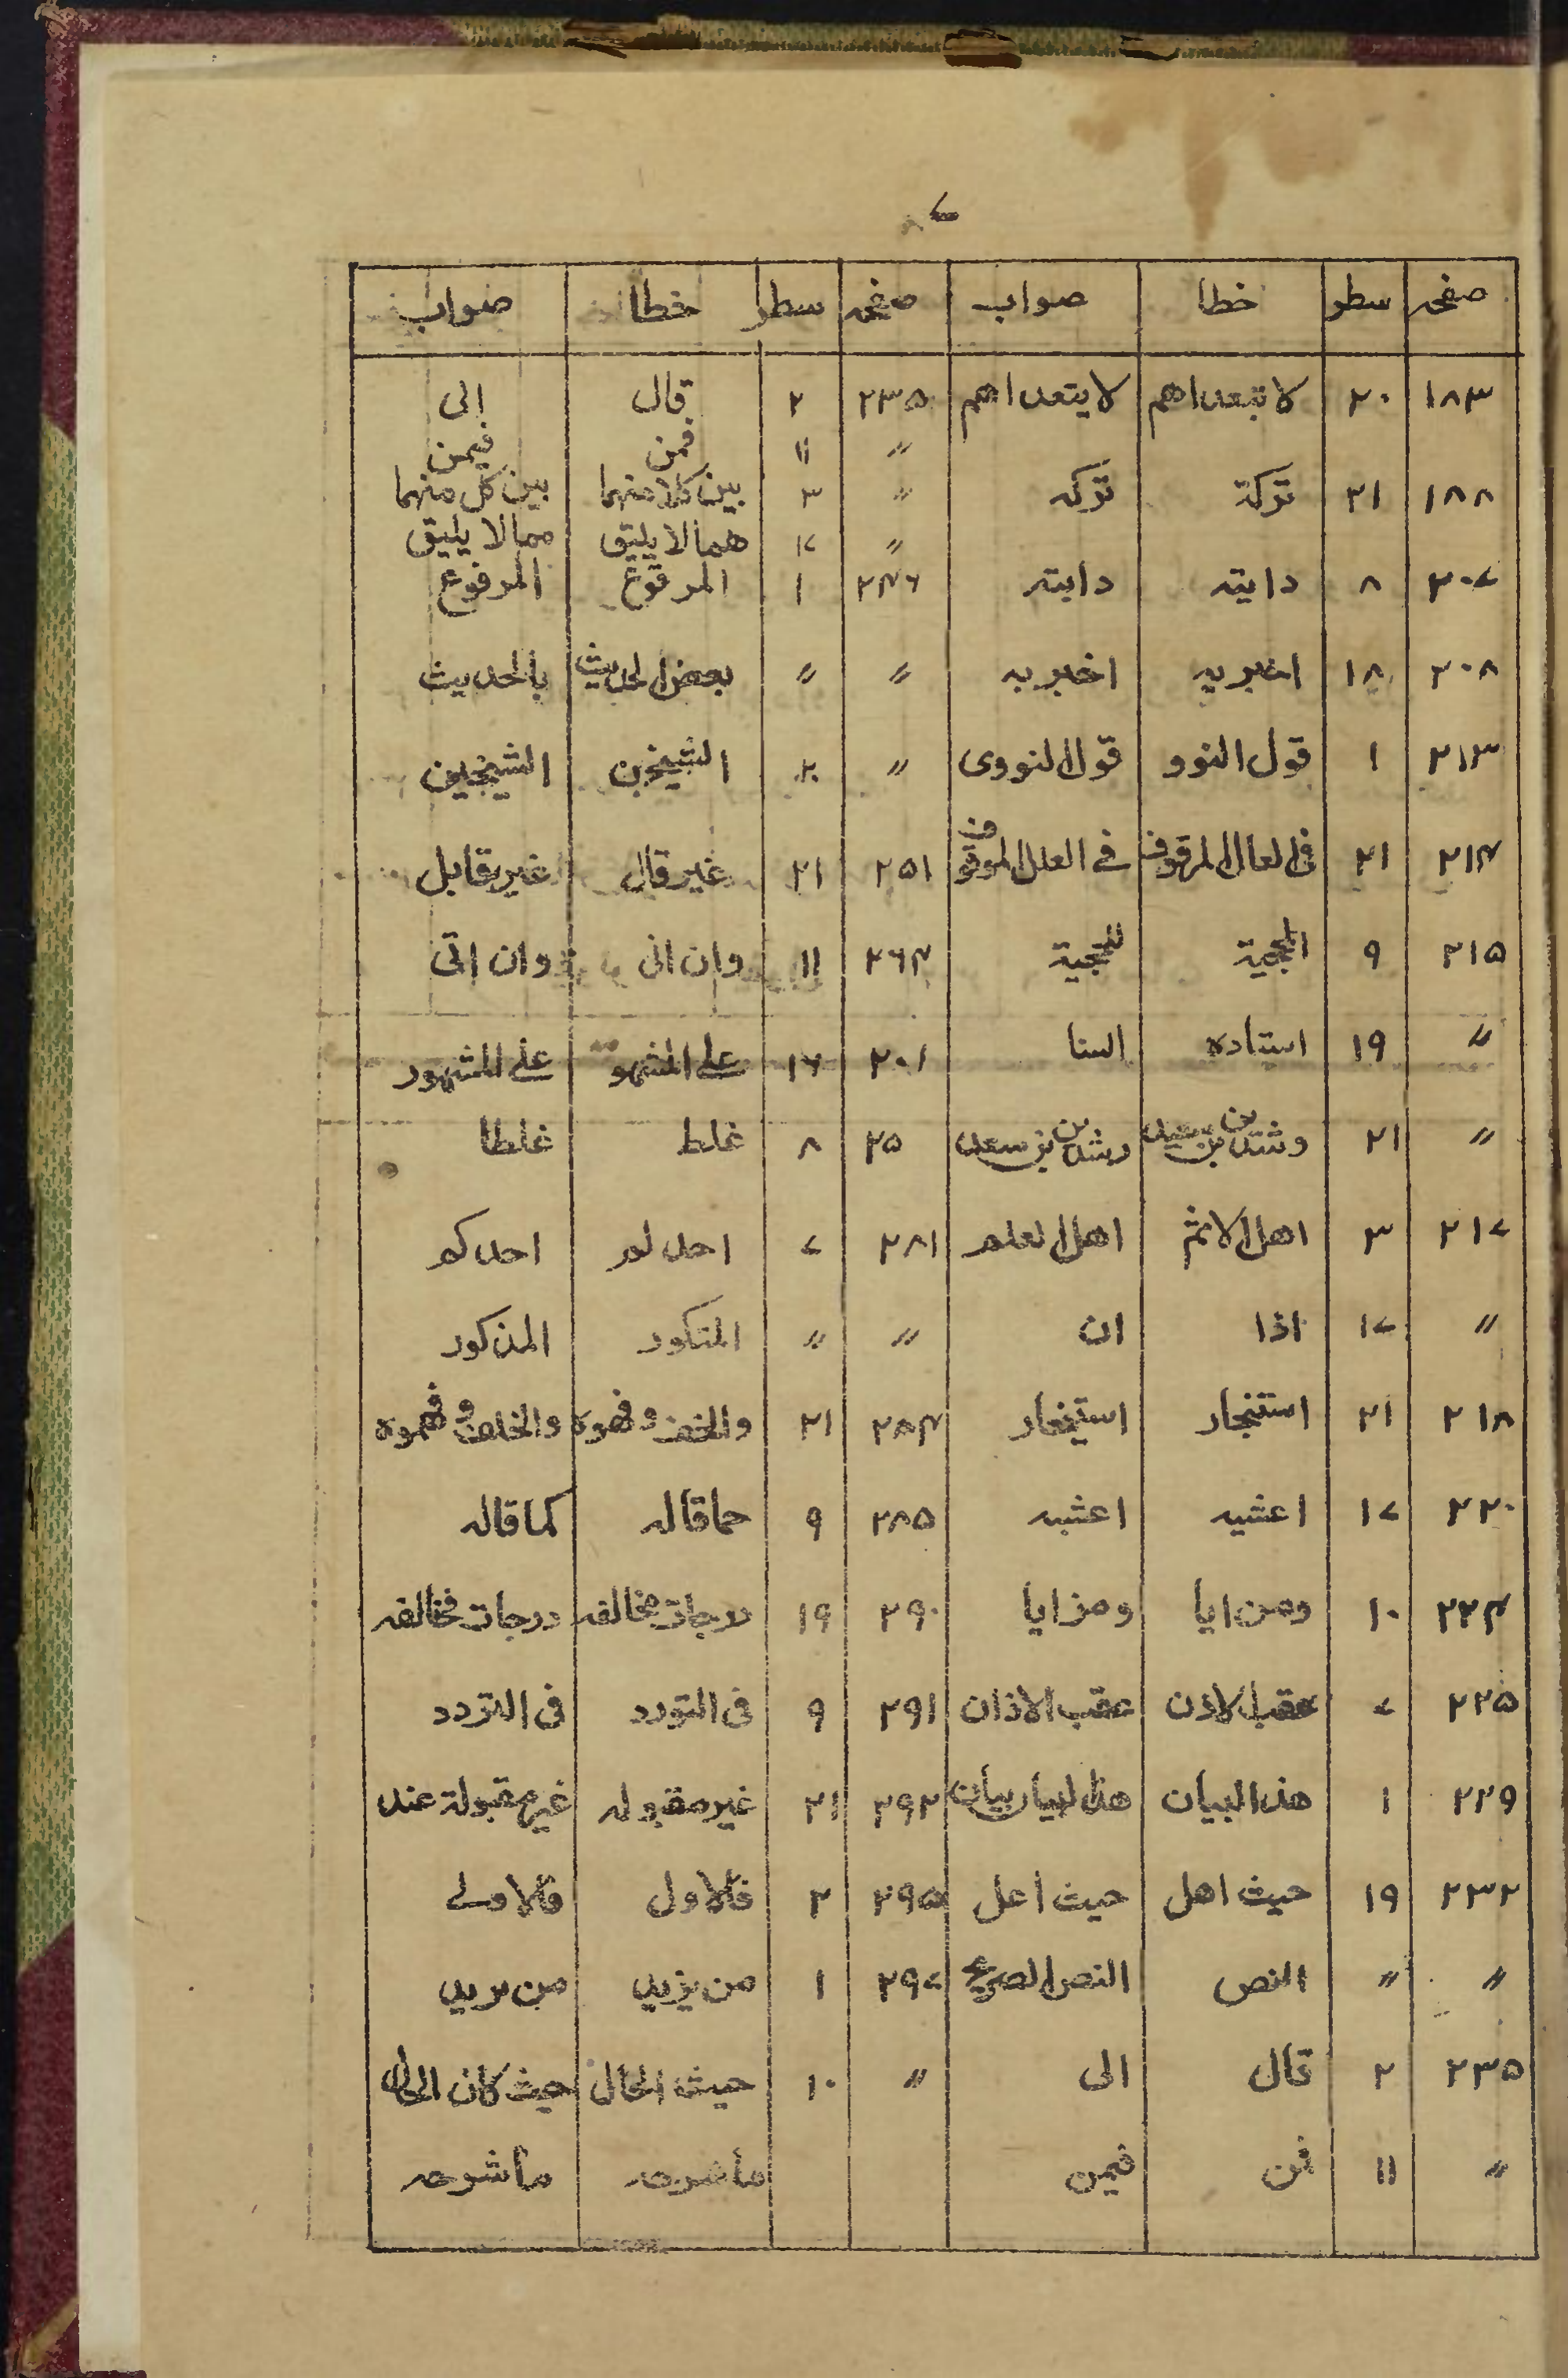 ٧
صفحہ سطر خطا صواب صفحہ سطر خطا صواب
١٨٣ ٢٠ لا تبعداهم لا يتعداهم ٢٣٥ ٢ قال الى
〃 ١١ فمن فيمن
١٨٨ ٢١ تركة تركه 〃 ٣ بين كلا منهما بين كل منهما
〃 ١٧ همالا يليق ممالا يليق
٢٠٧ ٨ دايته دابته ٢٤٦ ١ المرقوع المرفوع
٢٠٨ ١٨ اخبريه اخبر به 〃 〃 بعض الحديث بالحديث
٢١٣ ١ قول النوو قول النووى 〃 ٢ الشيخن الشيخين
٢١٤ ٢١ فى العال المرقوف فے العلل الموقوف ٢٥١ ٢١ غير قال غير قابل
٢١٥ ٩ للحجية ٢٦٤ ١١ وان انى وان اتى
〃 ١٩ استاده السنا ٢٠١ ١٦ على المشهو على المشهور
〃 ٢١ وشدين بن سعيد رشدين بن سعد ٢٥ ٨ غلط غلطا
٢١٧ ٣ اهل الاثم اهل العلم ٢٨١ ٧ احد لم احدكم
〃 ١٧ اذا ان 〃 〃 المتكور المذكور
٢١٨ ٢١ استنجار استيخار ٢٨٤ ٢١ والخف وفهوه والخلف وفهموه
٢٢٠ ١٧ اعشيه اعشبه ٢٨٥ ٩ حماقاله كماقاله
٢٢٤ ١٠ ومن ايا ومزايا ٢٩٠ ١٩ درجات مخالفه درجات مخالفه
٢٢٥ ٧ عقب الاذن عقب الاذان ٢٩١ ٩ فى التورد فى التردد
٢٢٩ ١ هذا البيان هذا البيان بيان ٢٩٢ ٢١ غير مقبوله غير مقبولة عند
٢٣٢ ١٩ حيث اهل حيث اعل ٢٩٥ ٢ فالاول فالاولے
〃 〃 النص النص الصريح ٢٩٧ ١ من يزيد من يريد
٢٣٥ ٢ قال الى 〃 ١٠ حيث الحال حيث كان الحال
〃 ١١ فمن فيمن ماشرحه